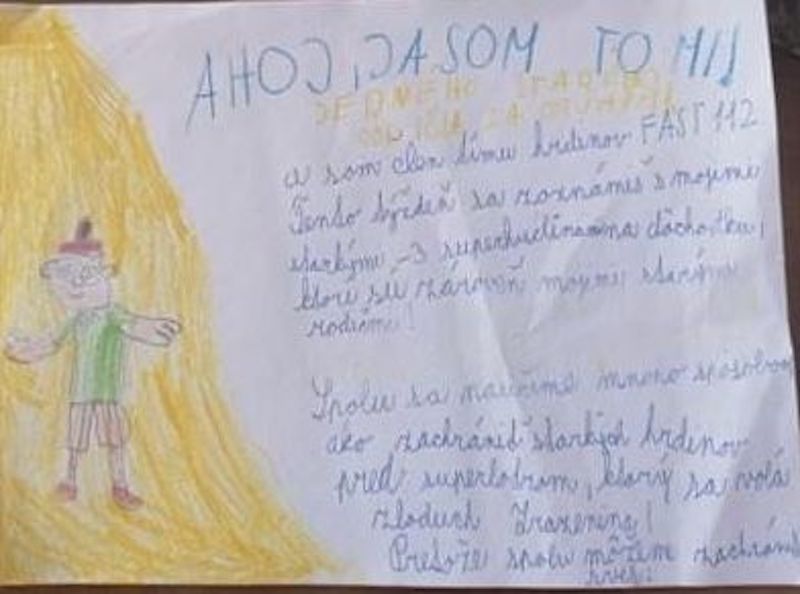 AHOJ, JA SOM TOMIJ
JEDNÉHO
ZA
a som člen tímu hrdinov FAST 112
Tento týždeň sa zoznámiš s mojimi
starkými, -3 superhrdinami na dôchodku,
ktorí sú zároveň mojimi starými
rodičmi!
Spolu sa naučíme mnoho spôsobov
ako zachrániť starkých hrdinov
pred superlotrom, ktorý sa volá
zloduch Zrazenina!
Pretože spolu môžem zachrániť
svet!